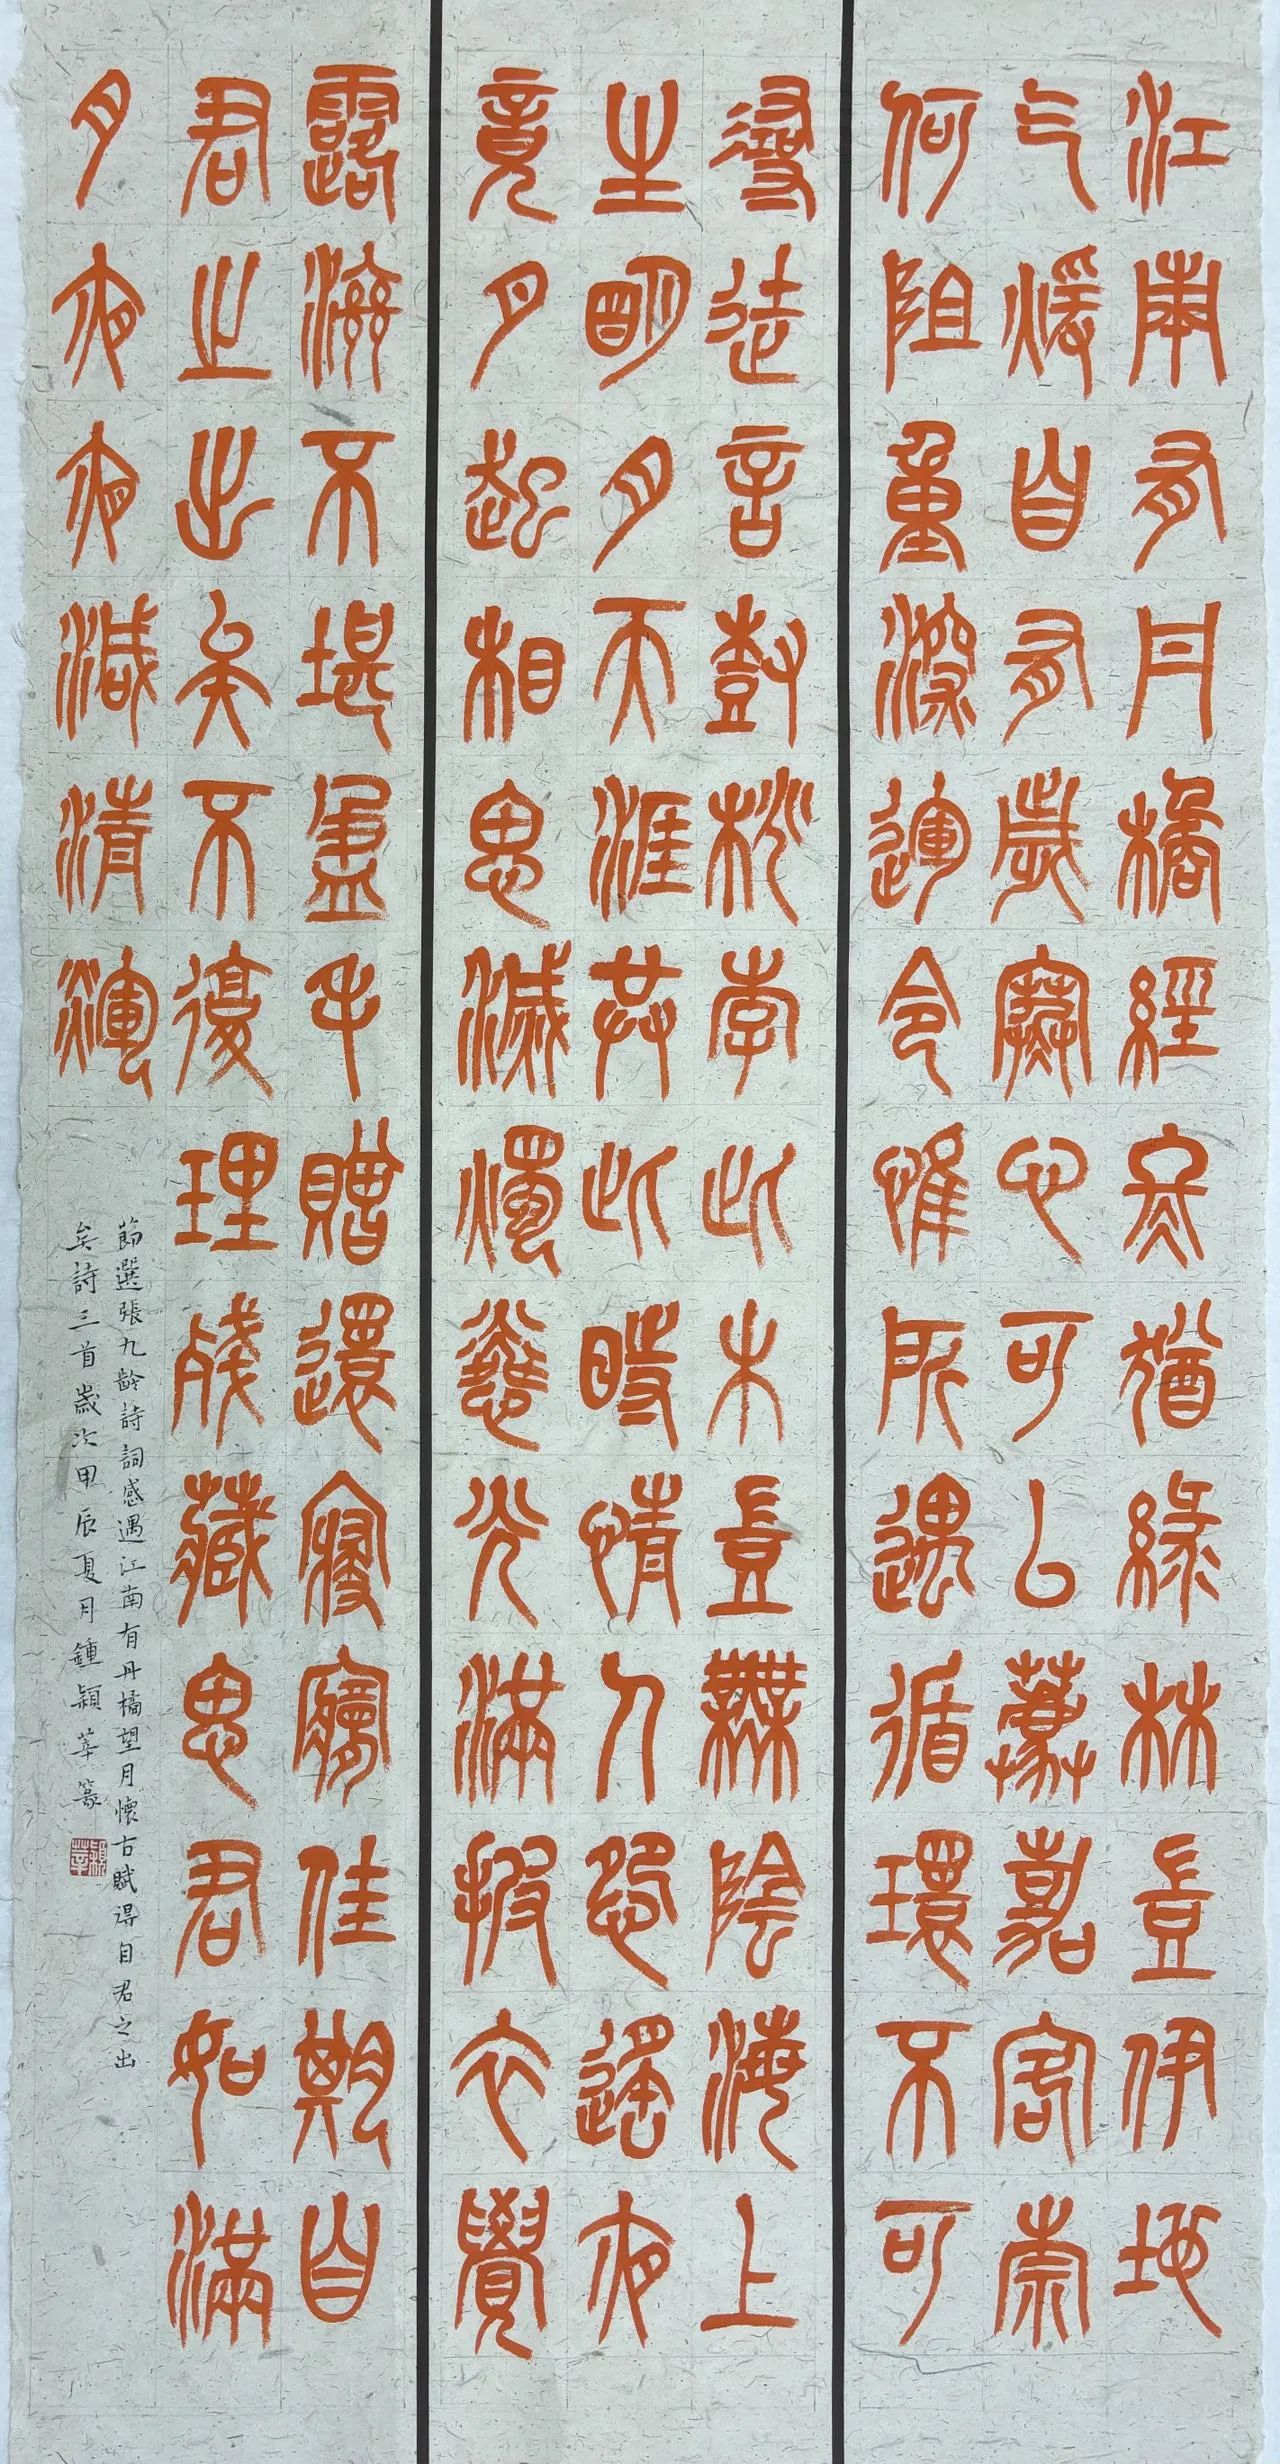 江南有丹橘經冬猶綠林豈伊地
气煖自有歲寒心可以薦嘉客奈
何阻重深運令惟所遇循環不可
尋徒言樹桃李此木豈無陰海上
生明月天涯共此時情人怨遙夜
竟夕起相思滅燭憐光滿披衣覺
露滋不堪盈手贈還寢夢佳期自
君之出矣不復理殘藏思君如滿
月夜夜減清輝
節選張九齡詩詞感遇江南有丹橘望月懷古賦得自君之出
矣詩三首歲次甲辰夏月鍾穎華篆
穎華